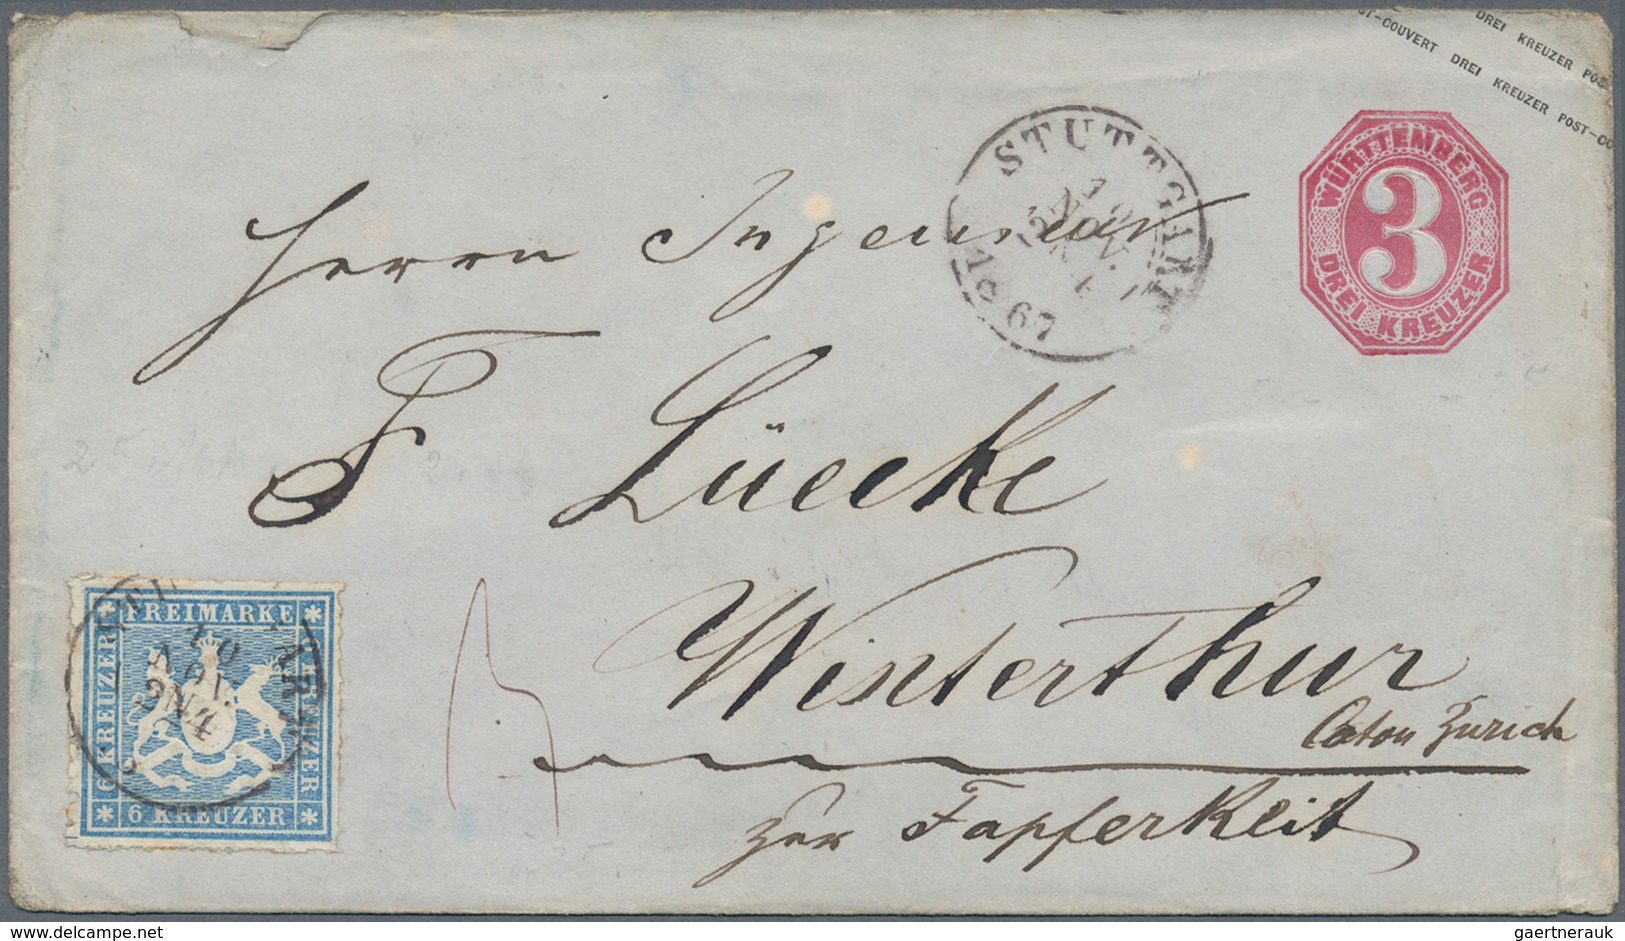 DREI KREUZER POS
ST-COUVERT DREI KREUZER POST-CO
WÜRTTEMBERG
3
DREI KREUZER
STUTTGART
1867
Herrn Ingenieur
F Lüecke
Winterthur
Caton Zurich
zur Tapferkeit
FREIMARKE
6 KREUZER
6 KREUZER
6 KREUZER
10
AUG
2N4
delcampe.net
gaertnerauk